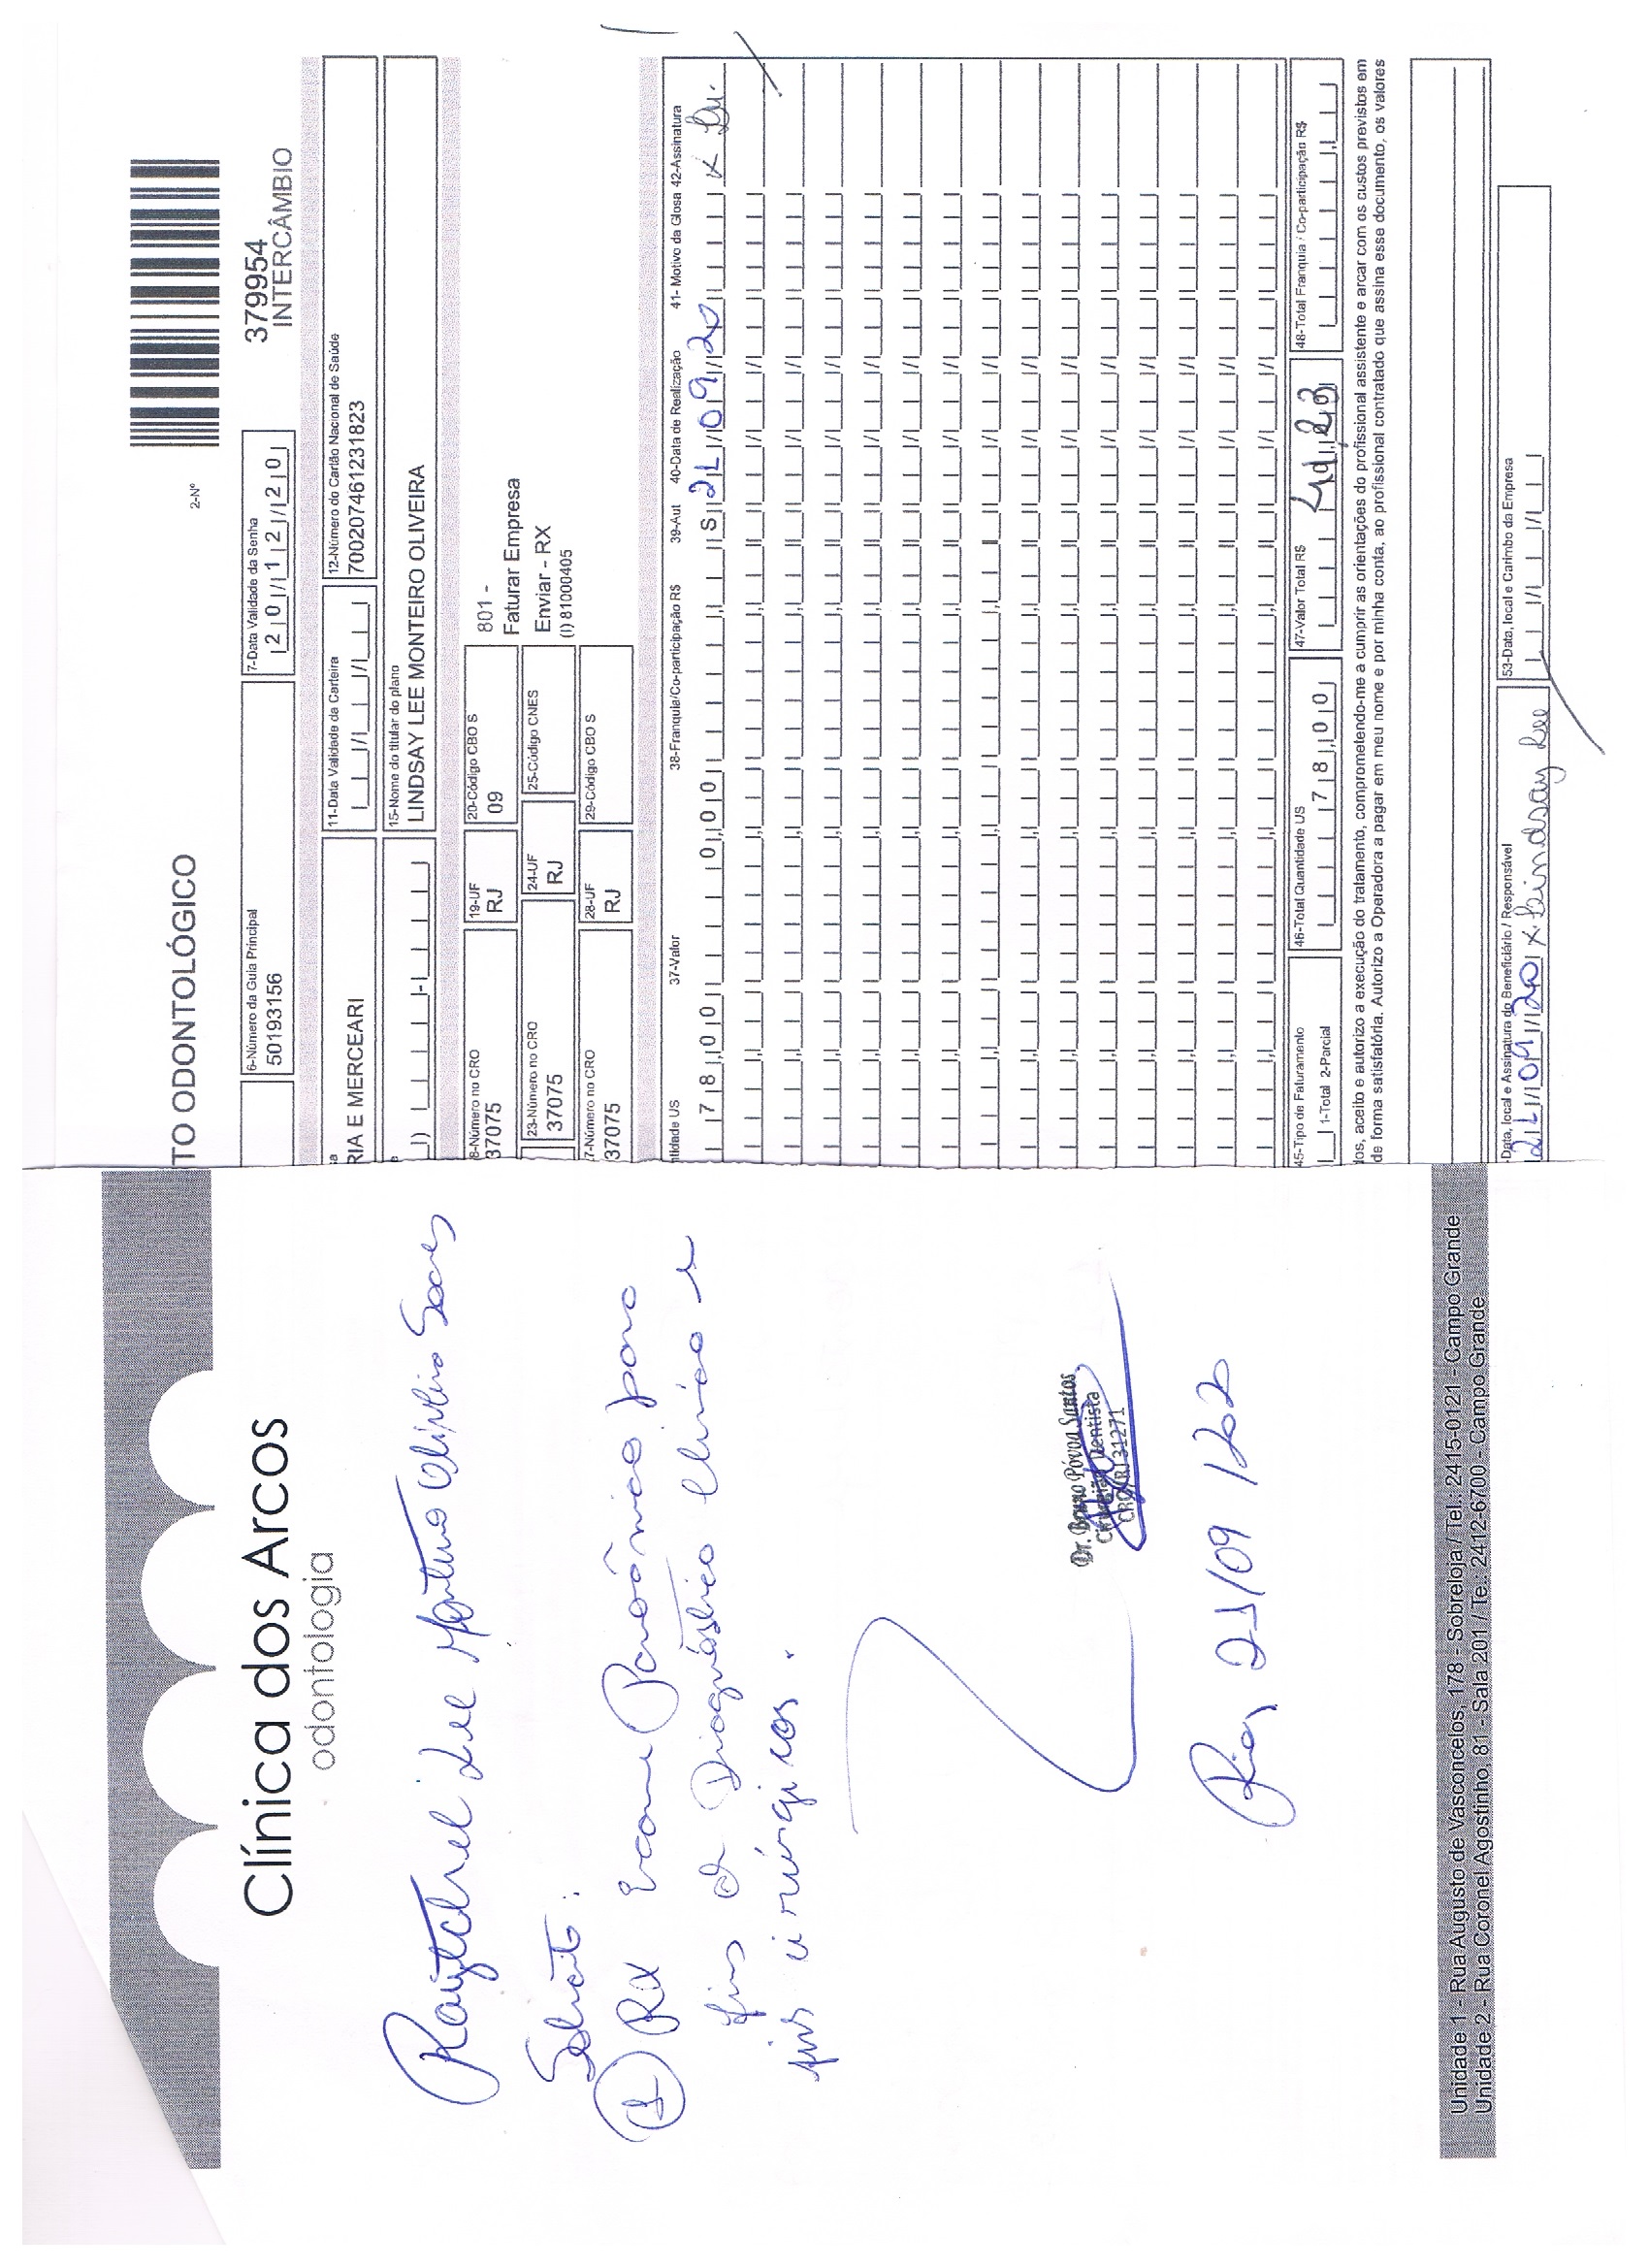 Clínica dos Arcos
odontologia
Lee
Solicito:
① RX Exame Panorâmico para
fins de Diagnóstico Clínico e
cirúrgicos.
Dr. Bruno Póvoa Santos
Cirurgião Dentista
CRO RJ 31271
Rio, 21/09/2020
Unidade 1 - Rua Augusto de Vasconcelos, 178 - Sobreloja / Tel.: 2415-0121 - Campo Grande
Unidade 2 - Rua Coronel Agostinho, 81 - Sala 201 / Te.: 2412-6700 - Campo Grande
TO ODONTOLÓGICO
2-Nº
379954
INTERCÂMBIO
6-Número da Guia Principal
50193156
7-Data Validade da Senha
20/12/20
RIA E MERCEARI
11-Data Validade da Carteira
12-Número do Cartão Nacional de Saúde
700207461231823
15-Nome do titular do plano
LINDSAY LEE MONTEIRO OLIVEIRA
8-Número no CRO
37075
19-UF
RJ
20-Código CBO S
09
801 -
Faturar Empresa
Enviar - RX
(I) 81000405
23-Número no CRO
37075
24-UF
RJ
25-Código CNES
7-Número no CRO
37075
28-UF
RJ
29-Código CBO S
ntidade US 37-Valor 38-Franquia/Co-participação R$ 39-Aut 40-Data de Realização 41- Motivo da Glosa 42-Assinatura
78,00 0,00 S 21/09/20 x
45-Tipo de Faturamento
1-Total 2-Parcial
46-Total Quantidade US
78,00
47-Valor Total R$
48-Total Franquia / Co-participação R$
dos, aceito e autorizo a execução do tratamento, comprometendo-me a cumprir as orientações do profissional assistente e arcar com os custos previstos em
de forma satisfatória. Autorizo a Operadora a pagar em meu nome e por minha conta, ao profissional contratado que assina esse documento, os valores
-Data, local e Assinatura do Beneficiário / Responsável
21/09/20 x Lindsay Lee
53-Data, local e Carimbo da Empresa